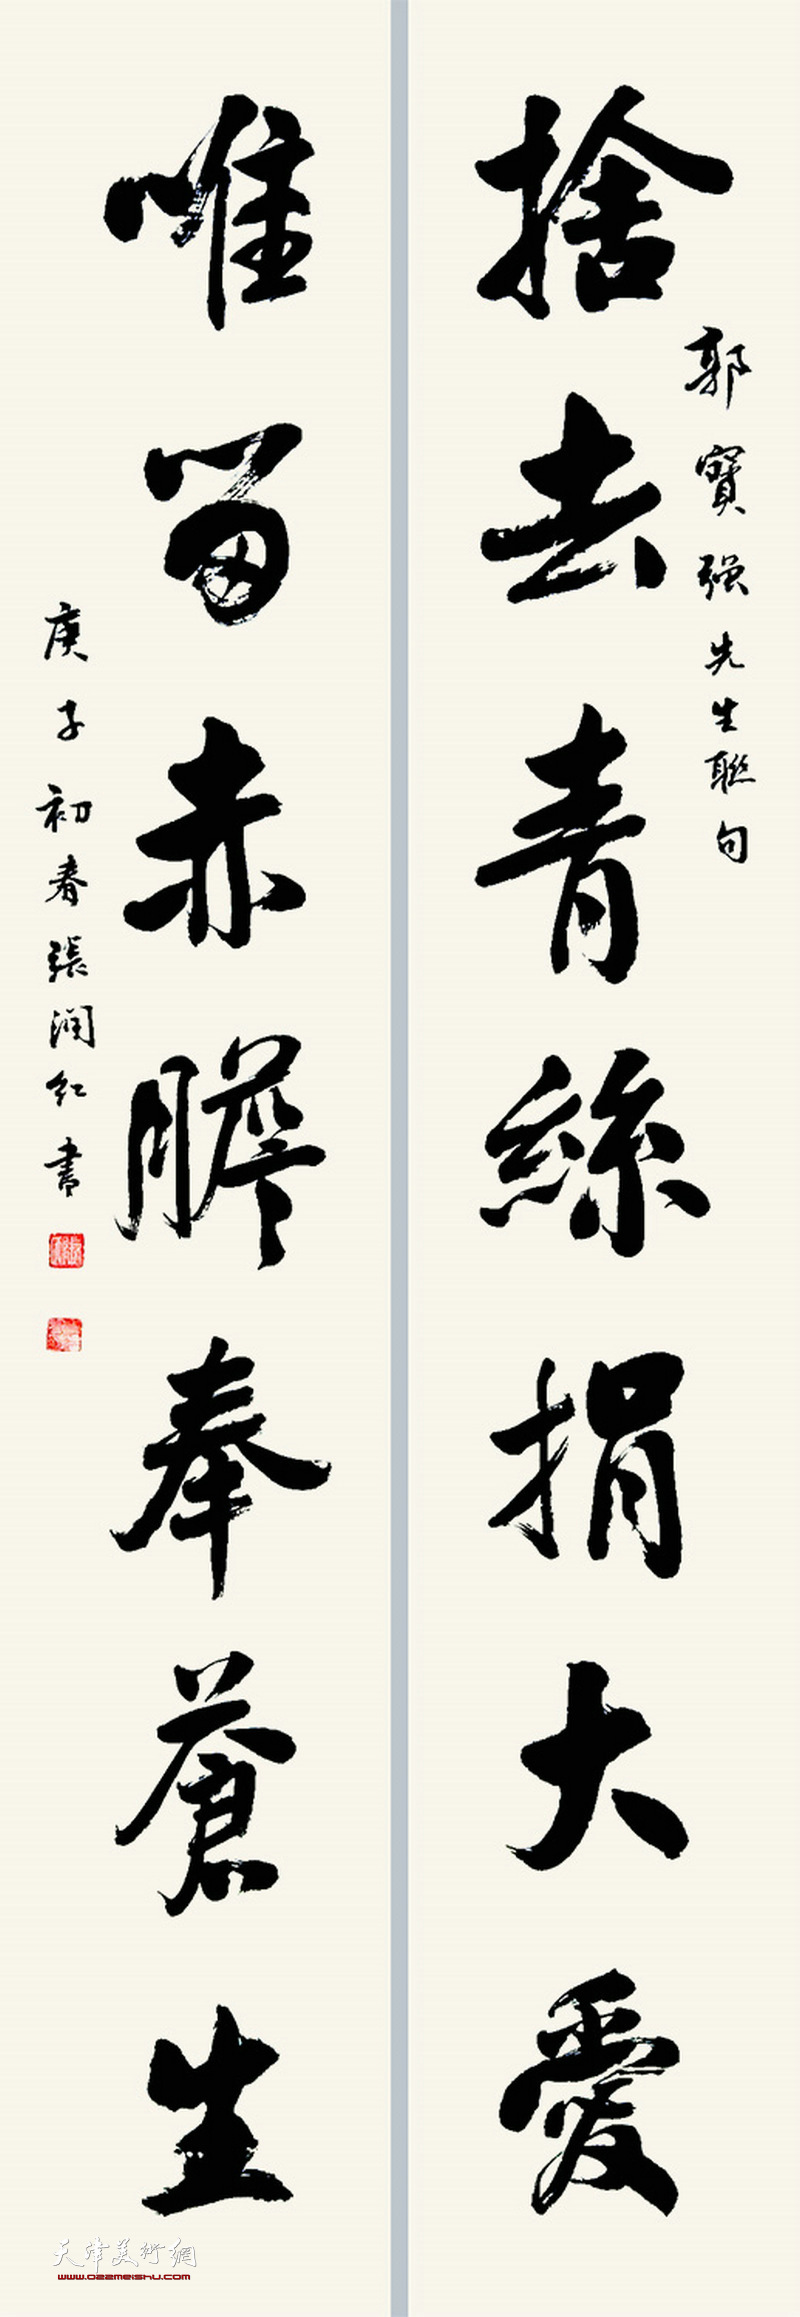 郭寶强先生聯句
捨去青絲捐大愛
唯留赤膽奉蒼生
庚子初春張潤紅書
天津美術網
www.022meishu.com